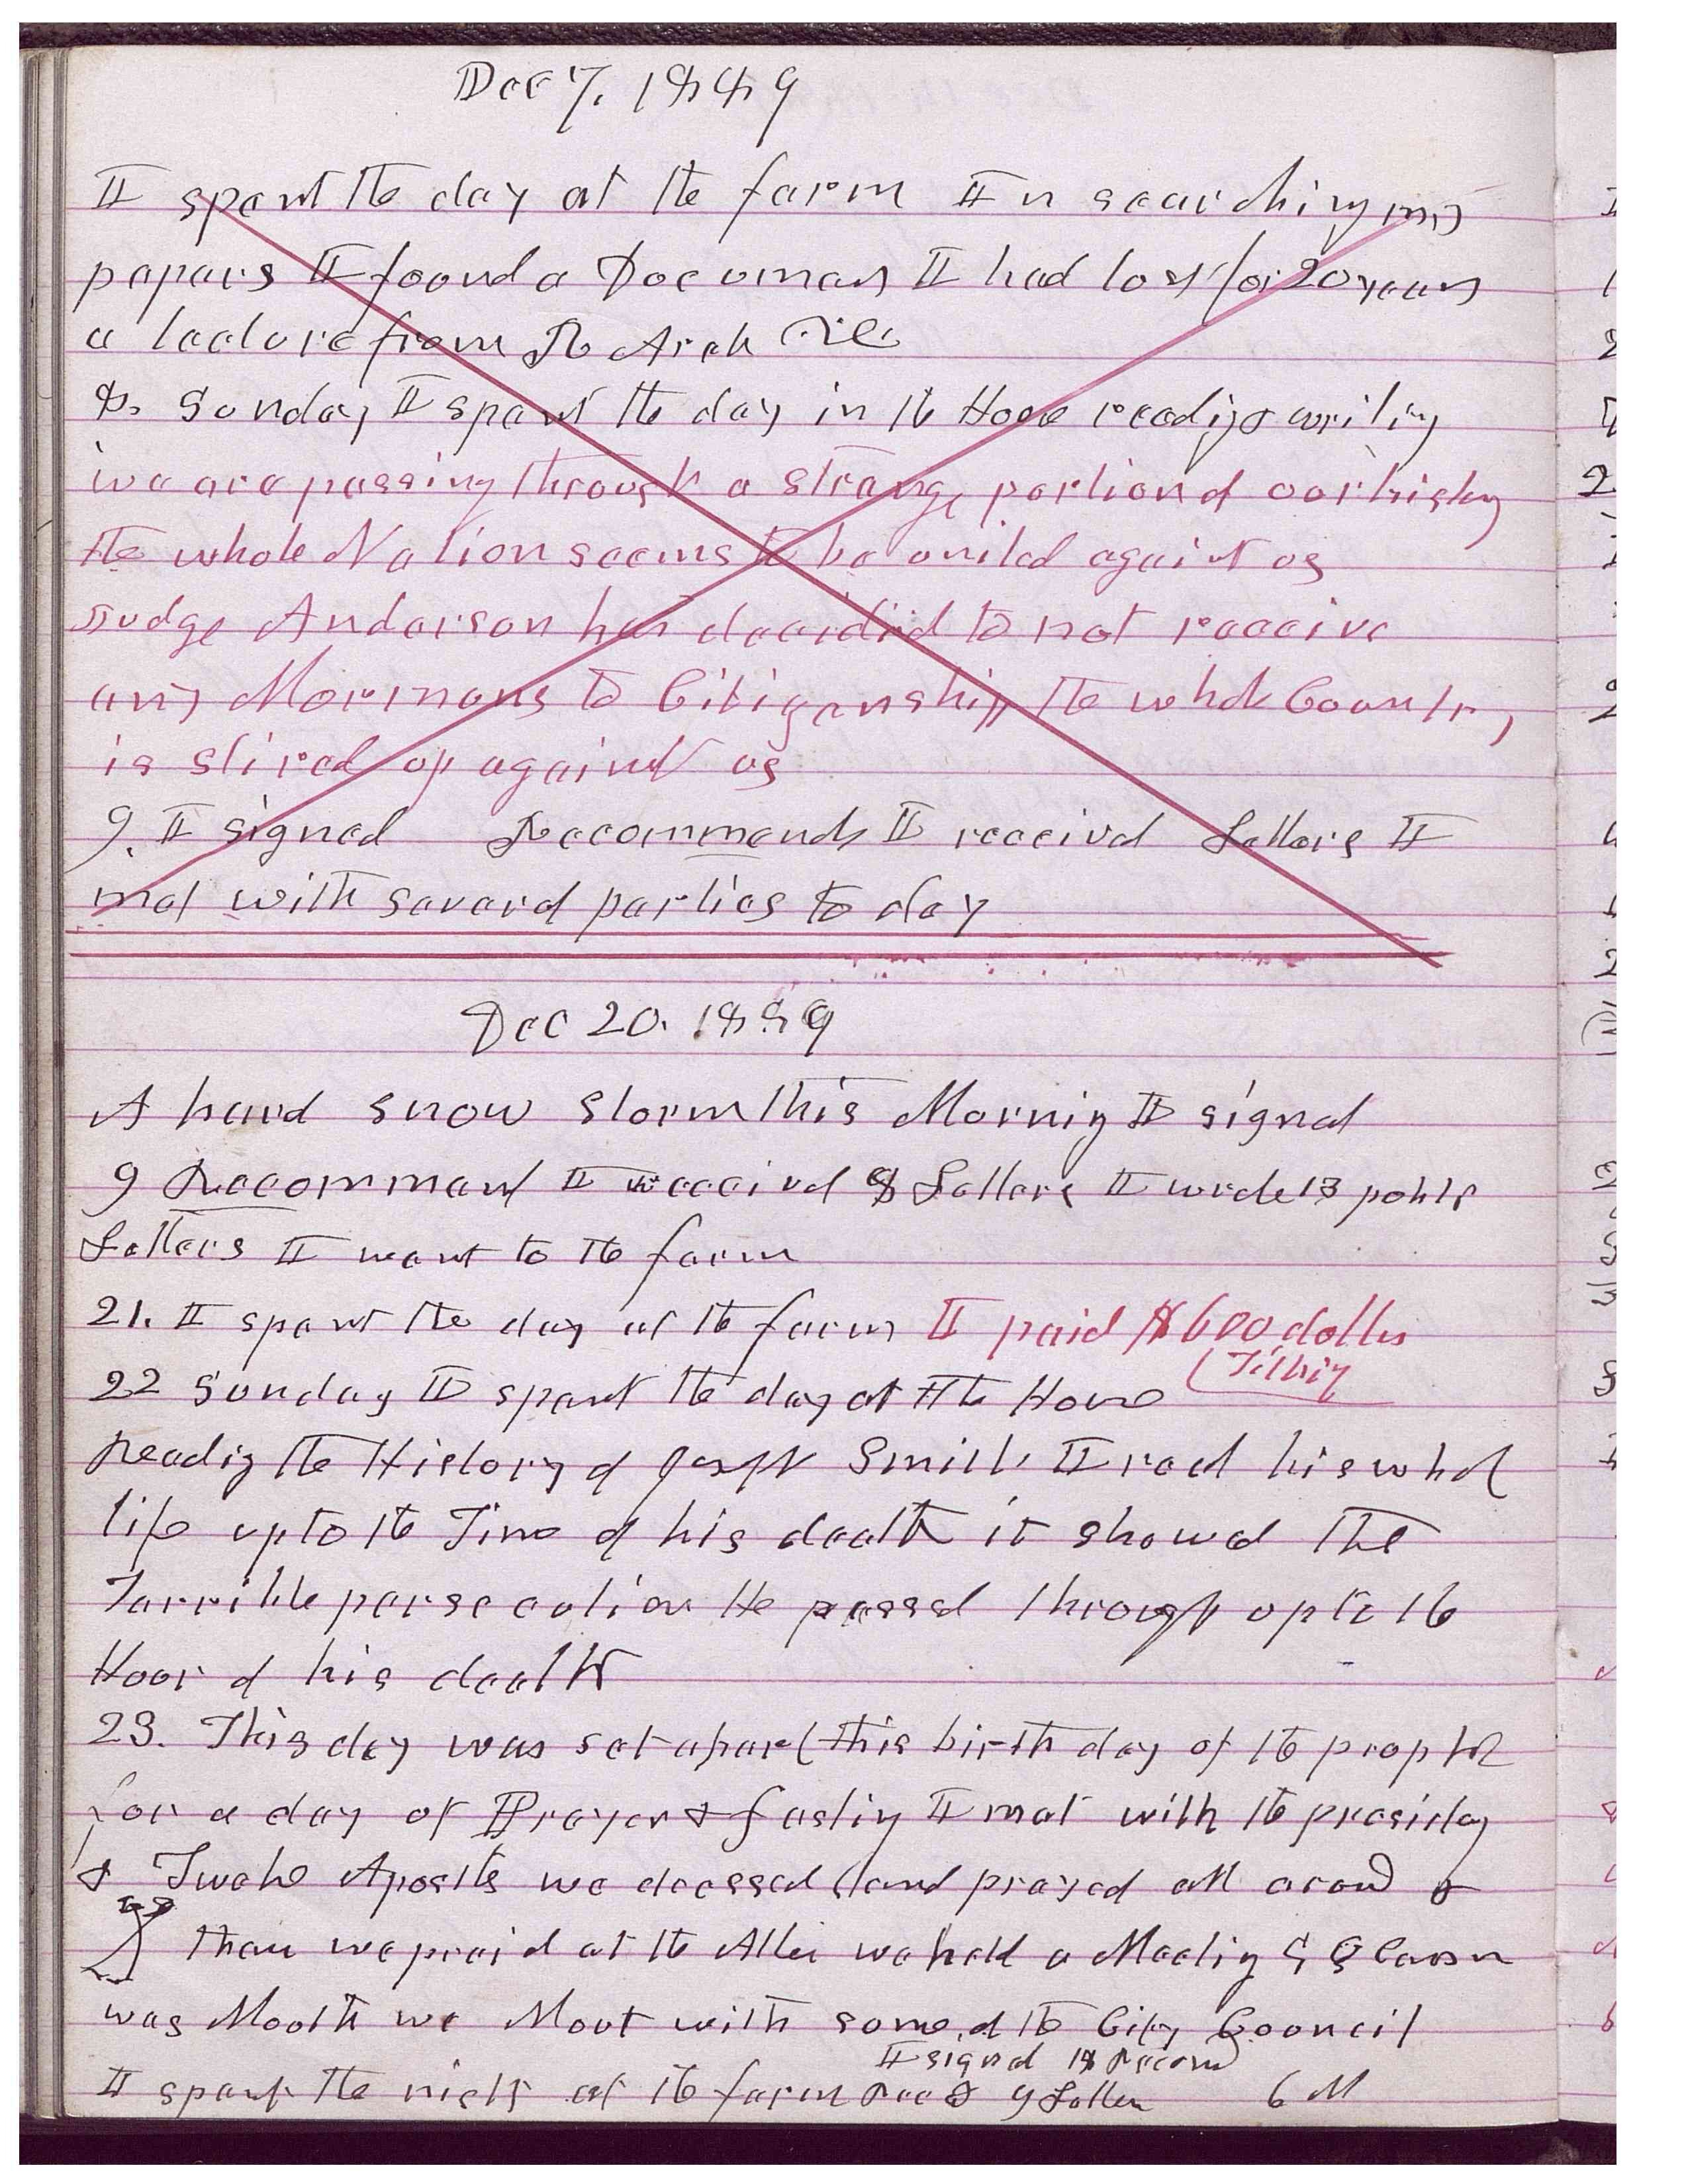 Dec 7. 1889
I spent the day at the farm In searching my
papers I found a Document I had lost for 20 years
a lecture from
8. Sunday I spent the day in the House reading & writing
we are passing through a strange portion of our history
the whole Nation seems to be united against us
Judge Anderson has decidid to not receive
any Mormons to Citizenship the whole Country
is stired up against us
9. I signed Recommends I received Letters I
met with several parties to day
Dec 20. 1889
A hard snow storm this Morning I signed
9 Recommend I received 8 Letters I wrote 3 public
Letters I went to the farm
21. I spent the day at the farm I paid $600 dollars
(Tithing
22 Sunday I spent the day at the House
Reading the History of Joseph Smith I read his whol
life up to the Time of his death it showed the
Terrible persecution He passed through up to the
Hour of his death
23. This day was set apart this birth day of the prophet
for a day of Prayer & fasting I met with the presidency
& Twelve Apostles we dressed and prayed all around &
then we praid at the Alter we held a Meeting
was Mouth we Meet with some of the City Council
I signed 18 Recom
I spent the night at the farm Recd 9 Letters 6 M